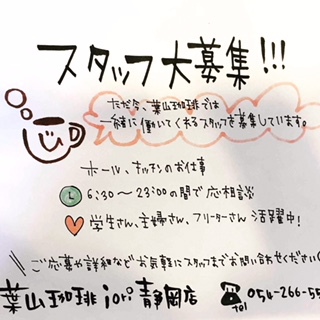 スタッフ大募集!!!
ただ今、葉山珈琲では
一緒に働いてくれるスタッフを募集しています。
ホール、キッチンのお仕事
6:30〜23:00の間で応相談
学生さん、主婦さん、フリーターさん 活躍中!
\\ ご応募や詳細など お気軽にスタッフまでお問い合わせください
葉山珈琲 jori 静岡店 ☎ 054-266-55
tel